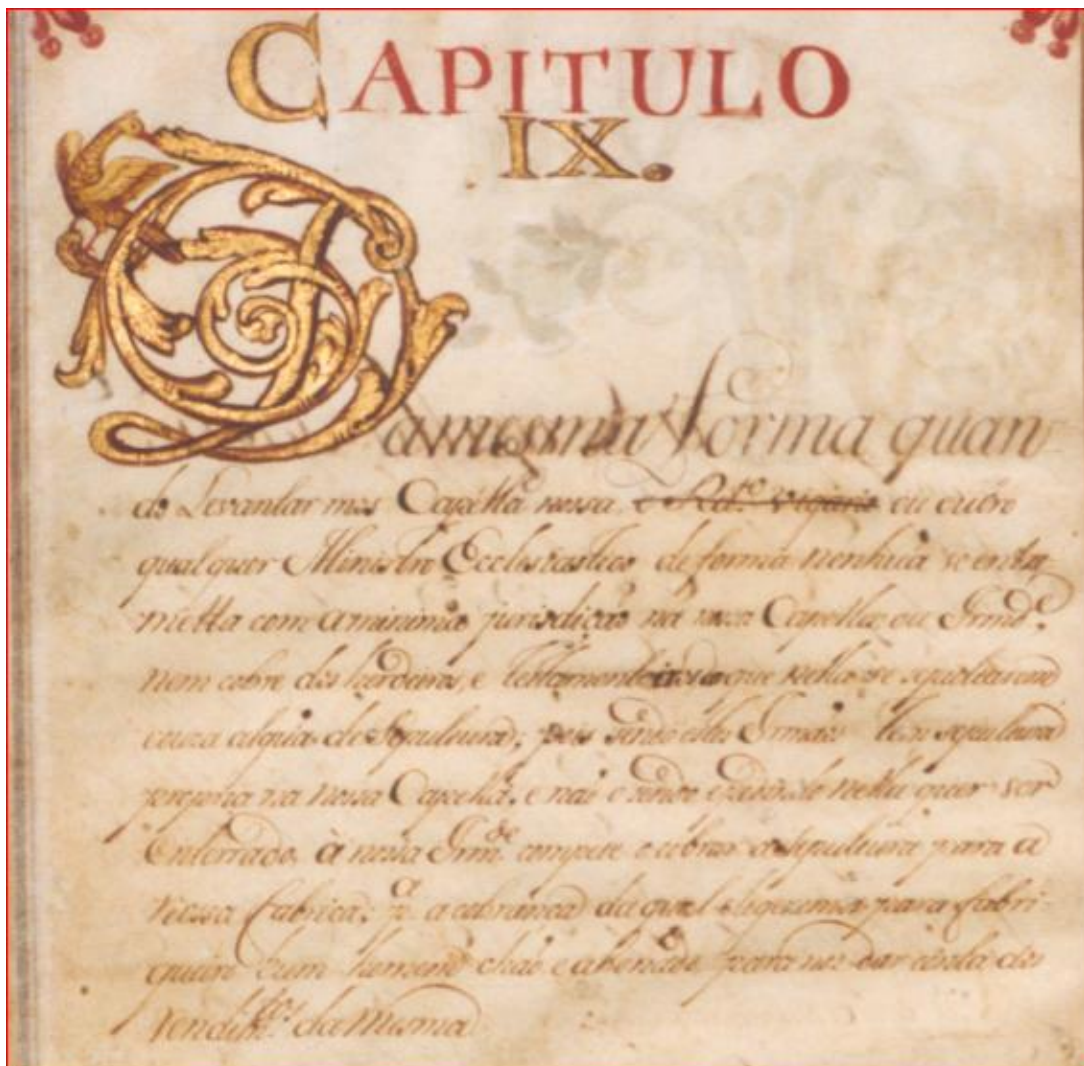 CAPITULO
IX.
Da mesma forma quan
do Levantarmos Capella nossa, o Rdo. Vigario ou outro
qualquer Ministro Ecclesiastico de forma nenhuã se entre
metta com a minima jurisdição na nossa Capella ou Irmde.
nem cobre dos herdeiros, e testamenteiros dos que nella se sepultarem
couza algũa de sepultura; pois sendo estes Irmãos tem sepultura
propria na nossa Capella, e não o sendo e nella quer ser
Enterrado, à nossa Irmde. compete o cobrar a sepultura para a
nossa fabrica, pa. a cobrança da qual elegeremos para fabri
queiro hum homem chão e abonado para nos dar conta dos
rendimtos. da mesma